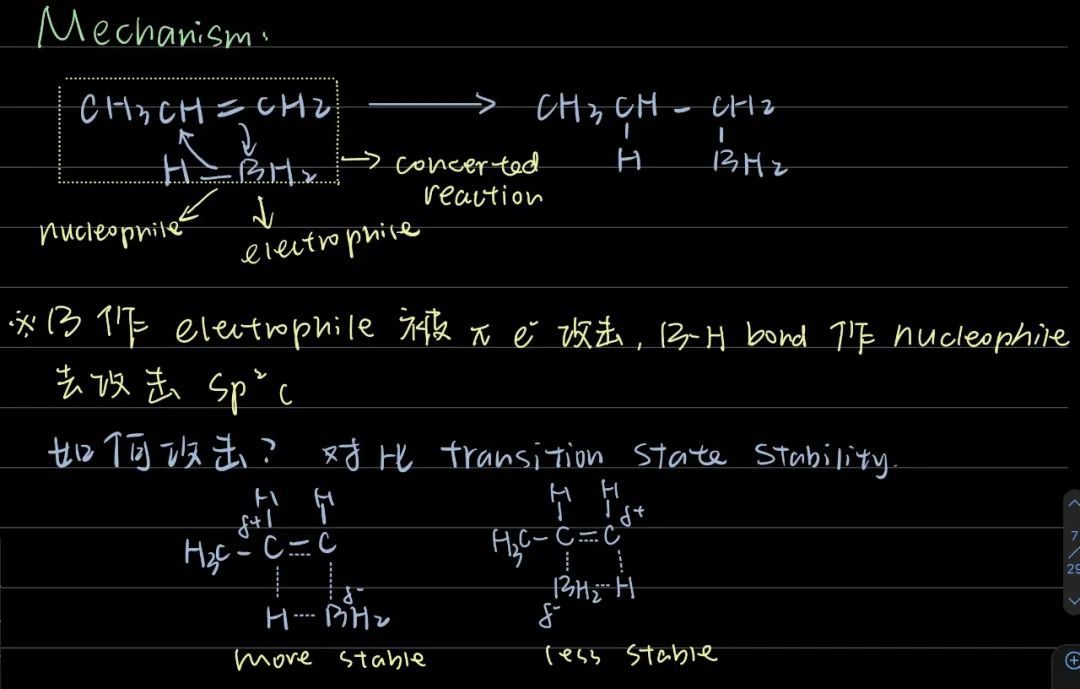 Mechanism:
CH3CH=CH2 → CH3CH-CH2
H-BH2 → concerted H BH2
reaction
nucleophile
electrophile
※ B 作 electrophile 被 π e⁻ 攻击, B-H bond 作 nucleophile
去攻击 sp² C
如何攻击? 对比 transition state stability.
H H H H
δ+ δ+
H3C-C=C H3C-C=C
δ-
H BH2 BH2 H
δ-
more stable less stable
7
/
29